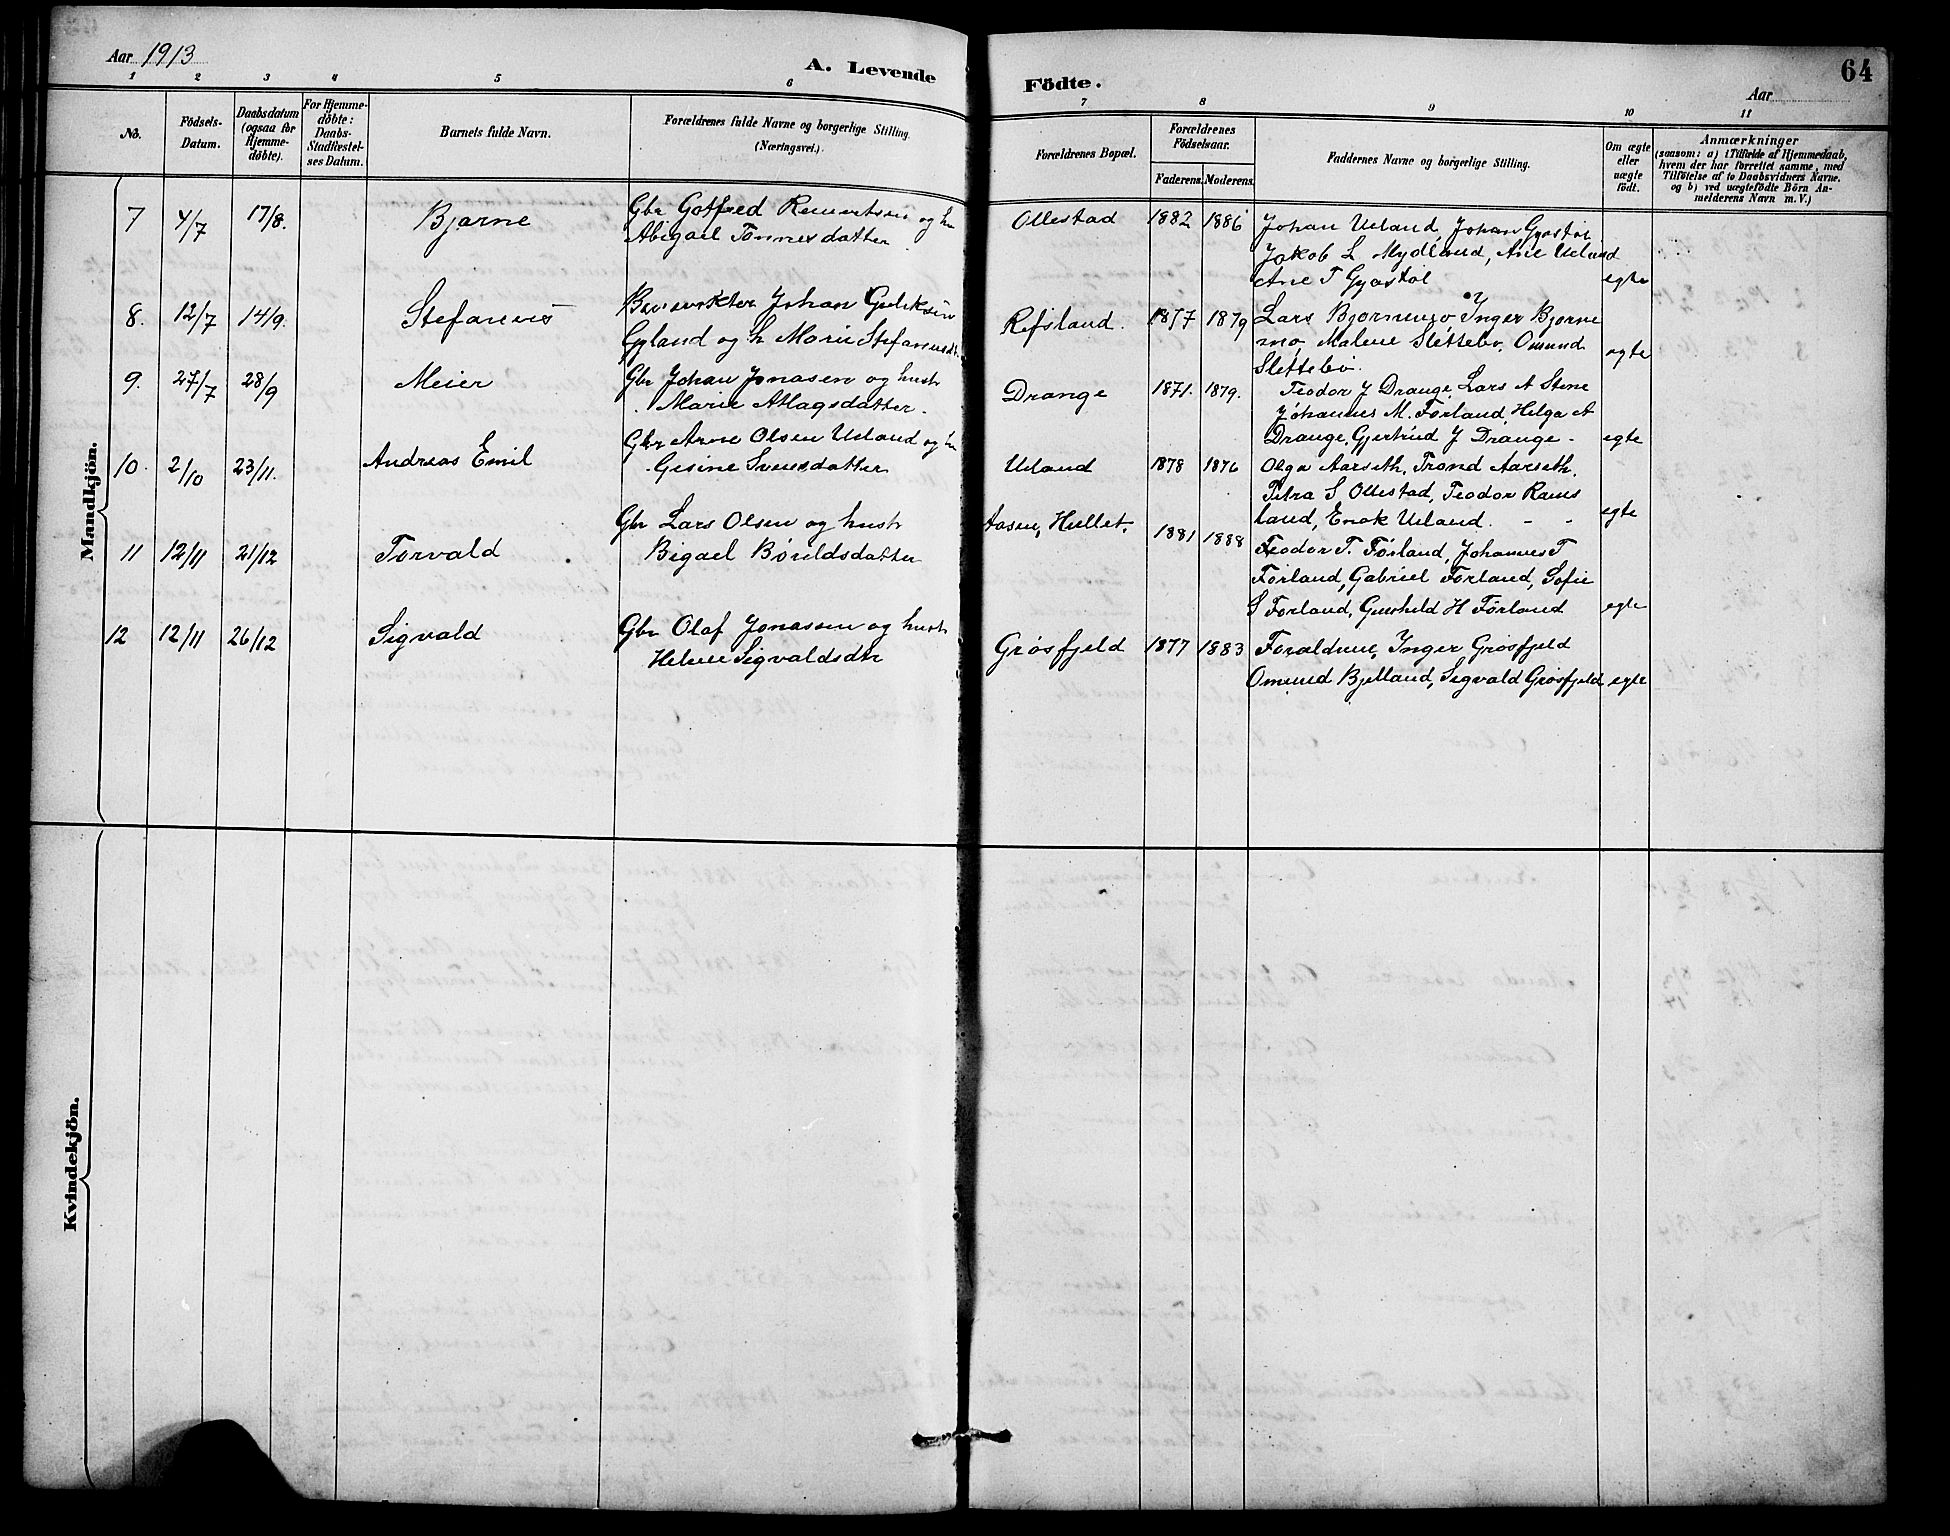 Aar 1913
A. Levende Födte.
64
Aar
1 2 3 4 5 6 7 8 9 10 11
No.
Födsels-Datum.
Daabsdatum (ogsaa for Hjemmedöbte).
For Hjemmedöbte: Daabs-Stadfæstelses Datum.
Barnets fulde Navn.
Forældrenes fulde Navne og borgerlige Stilling. (Næringsvei.)
Forældrenes Bopæl.
Forældrenes Födselsaar.
Faderens. Moderens.
Faddernes Navne og borgerlige Stilling.
Om ægte eller uægte födt.
Anmærkninger
(saasom: a) i Tilfælde af Hjemmedaab, hvem der har forrettet samme, med Tilföielse af to Daabsvidners Navne. og b) ved uægtefödte Börn Anmelderens Navn m. V.)
Mandkjön.
7 4/7 17/8. Bjarne Gbr Gotfred og hu Ollestad 1882 1886 Johan Ueland, Johan Gyastøl
Abigael Tønnesdatter Jakob L Mydland, Ane Ueland
Ane T Gyastøl egte
8. 12/7 14/9. Stefanus Johan Guliksen Refsland. 1877 1879 Lars Bjørnemo Inger Bjørne
Gyland og h Marie Stefanusdt. mo Malene Slettebø, Omund
Slettebø. egte
9. 27/7 28/9 Meier Gbr Johan Jonasen og hust Drange 1871. 1879. Teodor J Drange, Lars A Stene
Marie Atlagsdatter. Johannes M. Førland, Helga A
Drange, Gjertrud J Drange - egte
10. 2/10 23/11. Andreas Emil Gbr Arne Olsen Ueland og hu Ueland 1878 1876 Olga Aarseth, Trond Aarseth,
Gesine Svensdatter Petra S Ollestad, Teodor Raus
land, Enok Ueland. - - egte
11 12/11 21/12 Torvald Gbr Lars Olsen og hustr Aasen, Hellet. 1881 1888 Teodor T. Førland, Johannes T
Bigael Børildsdatter Førland, Gabriel Førland, Sofie
S Førland, Gunhild H Førland egte
12 12/11 26/12 Sigvald Gbr Olaf Jonassen og hustr Grøsfjeld 1877 1883 Forældrene, Inger Grøsfjeld
Helene Sigvaldsdtr Omund Bjelland, Sigvald Grøsfjeld egte
Kvindekjön.